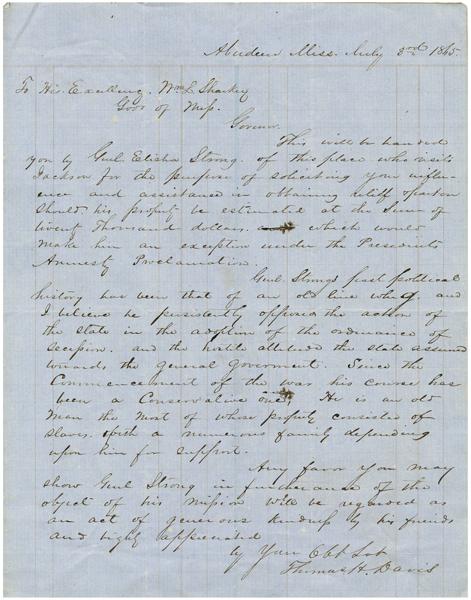 Aberdeen Miss. July 3rd 1865.
To His Excellency. Wm L Sharkey
Govr of Miss.
Govnor.
This will be handed
you by Genl Elisha Strong. of this place who visits
Jackson for the purpose of soliciting your influ-
ence and assistance in obtaining a pardon
should his property be estimated at the sum of
twenty thousand dollars. which would
make him an exception under the Presidents
Amnesty Proclamation.
Genl Strongs past political
history has been that of an old line whig. and
I believe he persistently opposed the action of
the state in the adoption of the ordinance of
secession. and the hostile attitude the state assumed
towards the general government. Since the
Commencement of the war his course has
been a Conservative one, He is an old
man the most of whose property consisted of
slaves. with a numerous family depending
upon him for support.
Any favor you may
show Genl Strong in furtherance of the
object of his mission will be regarded as
an act of generous kindness by his friends
and highly appreciated
by Your Obt Svt
Thomas H. Davis